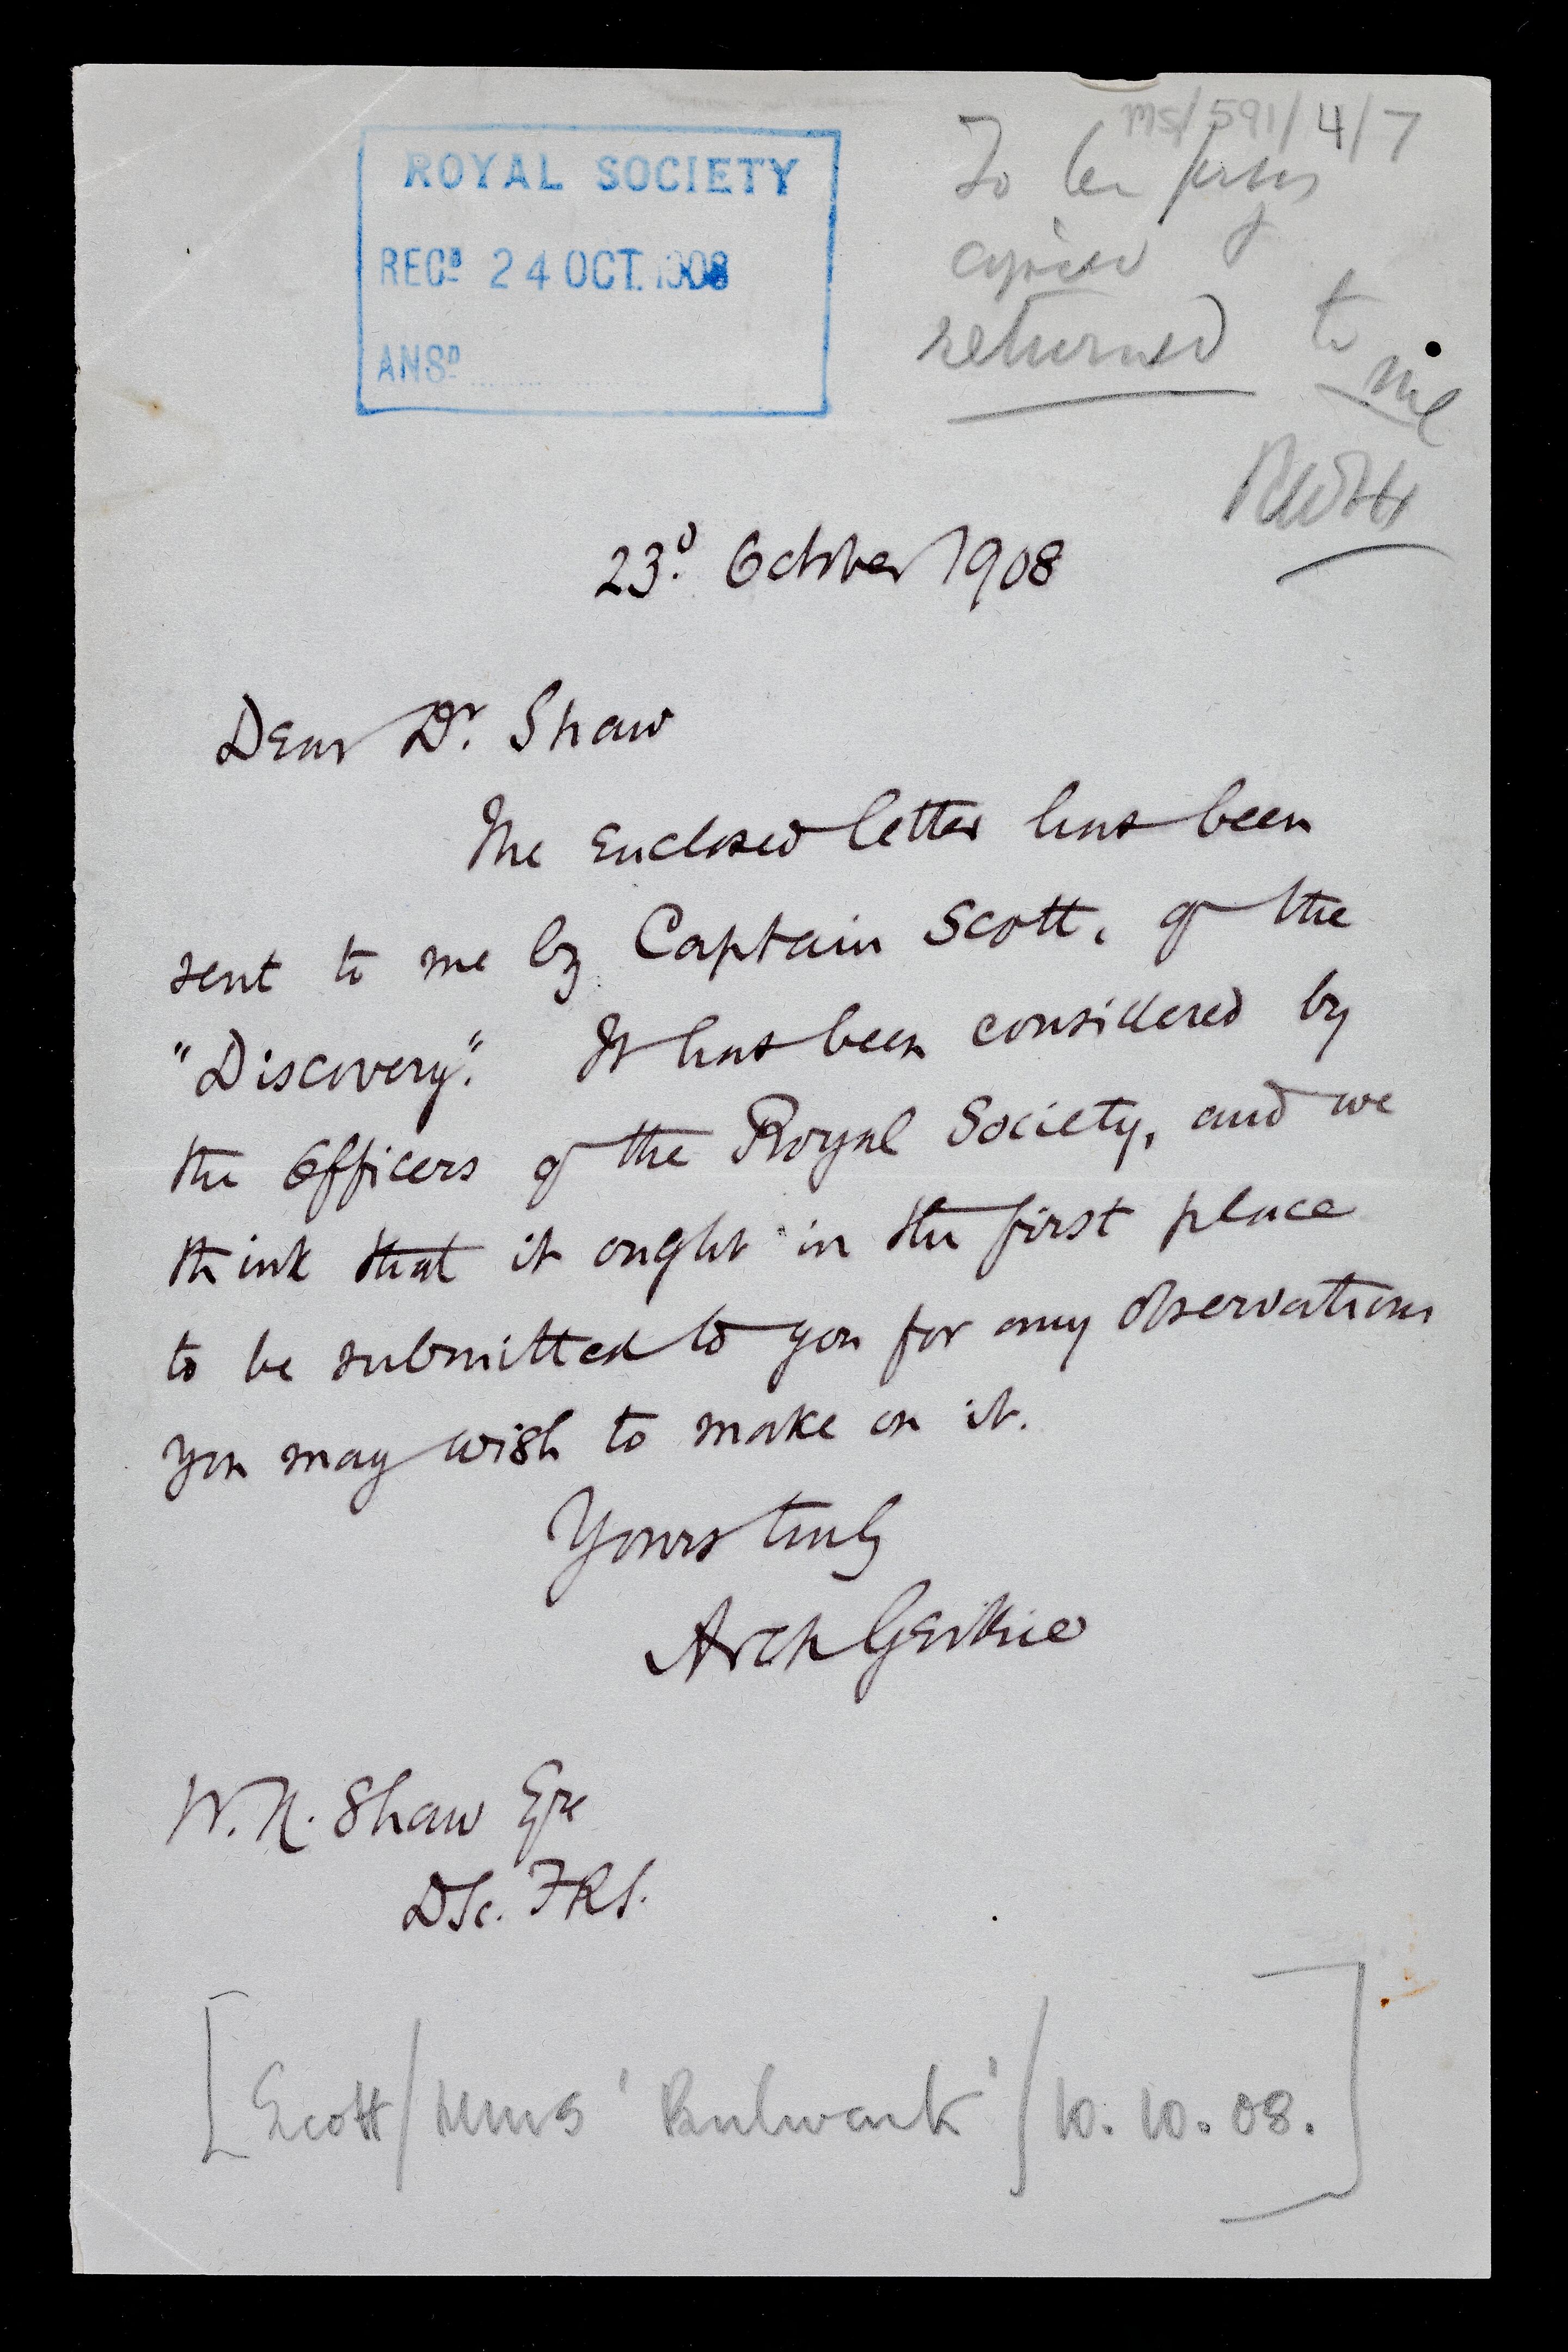 MS/591/4/7
ROYAL SOCIETY
RECD 24 OCT. 1908
ANSD
To be
copied &
returned to
me
RWFH
23d October 1908
Dear Dr. Shaw
The enclosed letter has been
sent to me by Captain Scott, of the
"Discovery". It has been considered by
the Officers of the Royal Society, and we
think that it ought in the first place
to be submitted to you for any observations
you may wish to make on it.
Yours truly
Arch Geikie
W. N. Shaw Esqre
DSc. FRS.
[Scott/HMS 'Bulwark'/10.10.08.]